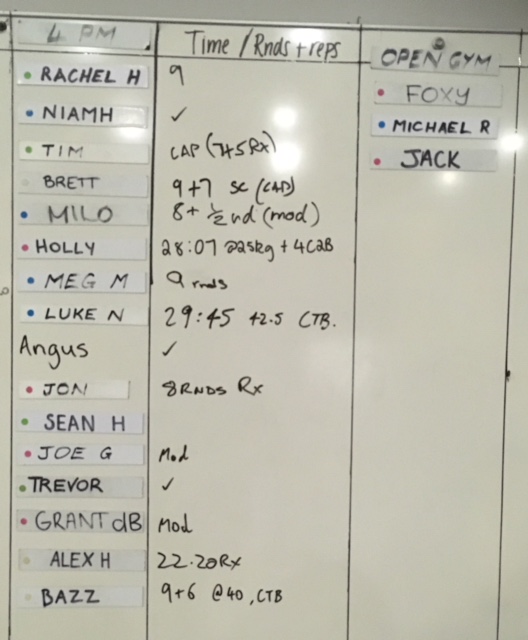 4 PM Time / Rnds + reps OPEN GYM
RACHEL H 9 FOXY
NIAMH ✓ MICHAEL R
TIM CAP (7+5 Rx) JACK
BRETT 9+7 SC (CAP)
MILO 8+ ½ rnd (mod)
HOLLY 28:07 @25kg + 4C2B
MEG M 9 rnds
LUKE N 29:45 42.5 CTB.
Angus ✓
JON 8 RNDS Rx
SEAN H
JOE G Mod
TREVOR ✓
GRANT dB Mod
ALEX H 22.20 Rx
BAZZ 9+6 @40, CTB